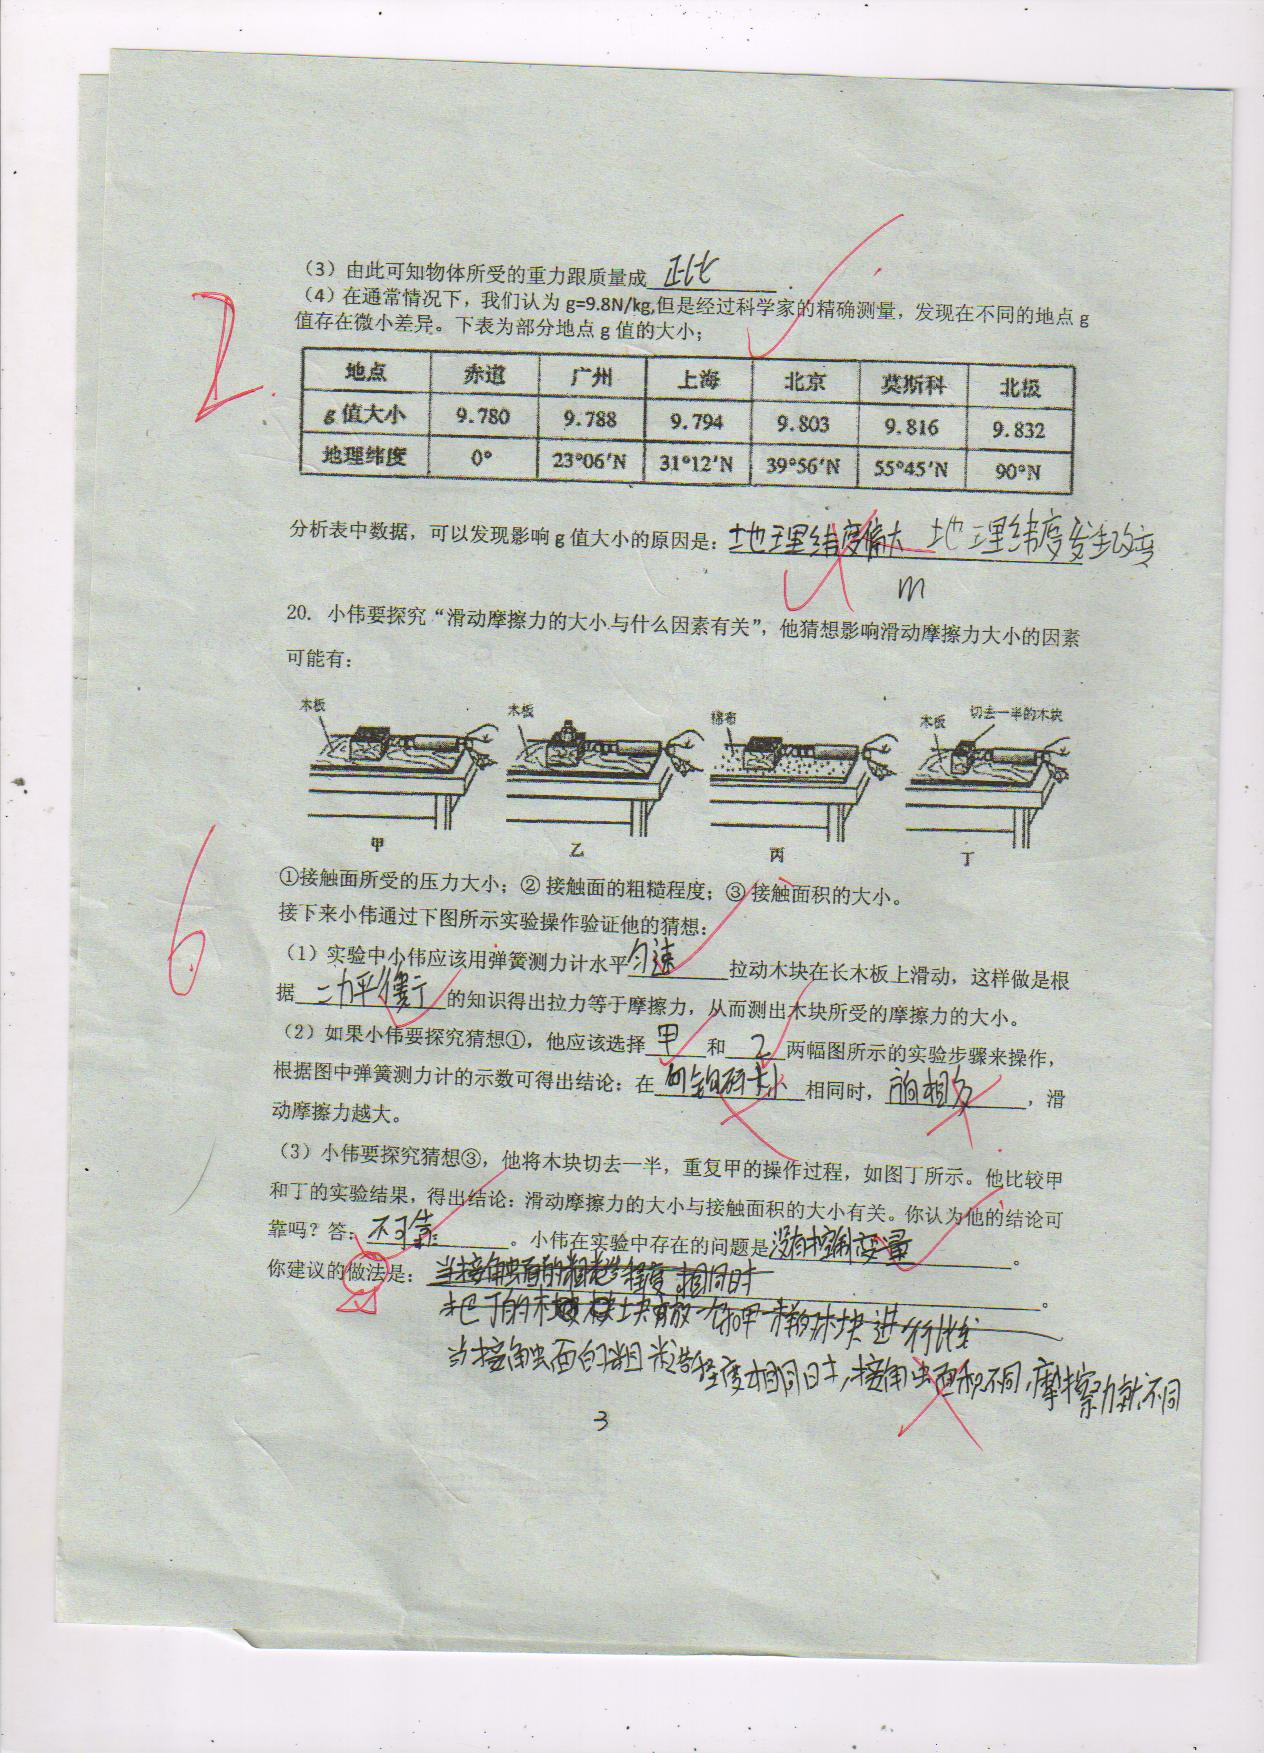 （3）由此可知物体所受的重力跟质量成 正比 .
（4）在通常情况下，我们认为 g=9.8N/kg,但是经过科学家的精确测量，发现在不同的地点 g
值存在微小差异。下表为部分地点 g 值的大小；
2.
地点 赤道 广州 上海 北京 莫斯科 北极
g 值大小 9.780 9.788 9.794 9.803 9.816 9.832
地理纬度 0° 23°06′N 31°12′N 39°56′N 55°45′N 90°N
分析表中数据，可以发现影响 g 值大小的原因是： 地理纬度偏大 地理纬度发生改变
m
20. 小伟要探究“滑动摩擦力的大小与什么因素有关”，他猜想影响滑动摩擦力大小的因素
可能有：
木板 木板 棉布 木板 切去一半的木块
甲 乙 丙 丁
6
①接触面所受的压力大小；② 接触面的粗糙程度；③ 接触面积的大小。
接下来小伟通过下图所示实验操作验证他的猜想：
（1）实验中小伟应该用弹簧测力计水平 匀速 拉动木块在长木板上滑动，这样做是根
据 二力平衡 的知识得出拉力等于摩擦力，从而测出木块所受的摩擦力的大小。
（2）如果小伟要探究猜想①，他应该选择 甲 和 乙 两幅图所示的实验步骤来操作，
根据图中弹簧测力计的示数可得出结论：在 砝码大小 相同时， ，滑
动摩擦力越大。
（3）小伟要探究猜想③，他将木块切去一半，重复甲的操作过程，如图丁所示。他比较甲
和丁的实验结果，得出结论：滑动摩擦力的大小与接触面积的大小有关。你认为他的结论可
靠吗？答： 不可靠 。小伟在实验中存在的问题是 没有控制变量 。
你建议的做法是： 当接触面的粗糙程度相同时 。
把丁的木块 放 和甲一样的木块进行比较
当接触面的粗糙程度相同时，接触面积不同，摩擦力就不同
3